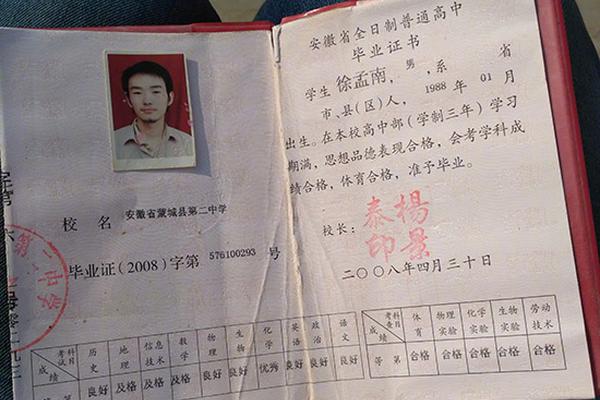 校名 安徽省蒙城县第二中学
毕业证(2008)字第 576100293 号
第二中学
考试科目 历史 地理 信息技术 数学 物理 生物 化学 英语 政治 语文
成绩 良好 及格 及格 及格 良好 良好 优秀 良好 良好 良好
安徽省全日制普通高中
毕业证书
学生 徐孟南，男，系 省
市、县(区)人，1988 年 01 月
出生。在本校高中部(学制三年)学习
期满，思想品德表现合格，会考学科成
绩合格，体育合格，准予毕业。
校长：
泰楊
印景
二〇〇八年四月三十日
考查科目 体育 物理实验 化学实验 生物实验 劳动技术
成绩 等第 合格 合格 合格 合格 合格